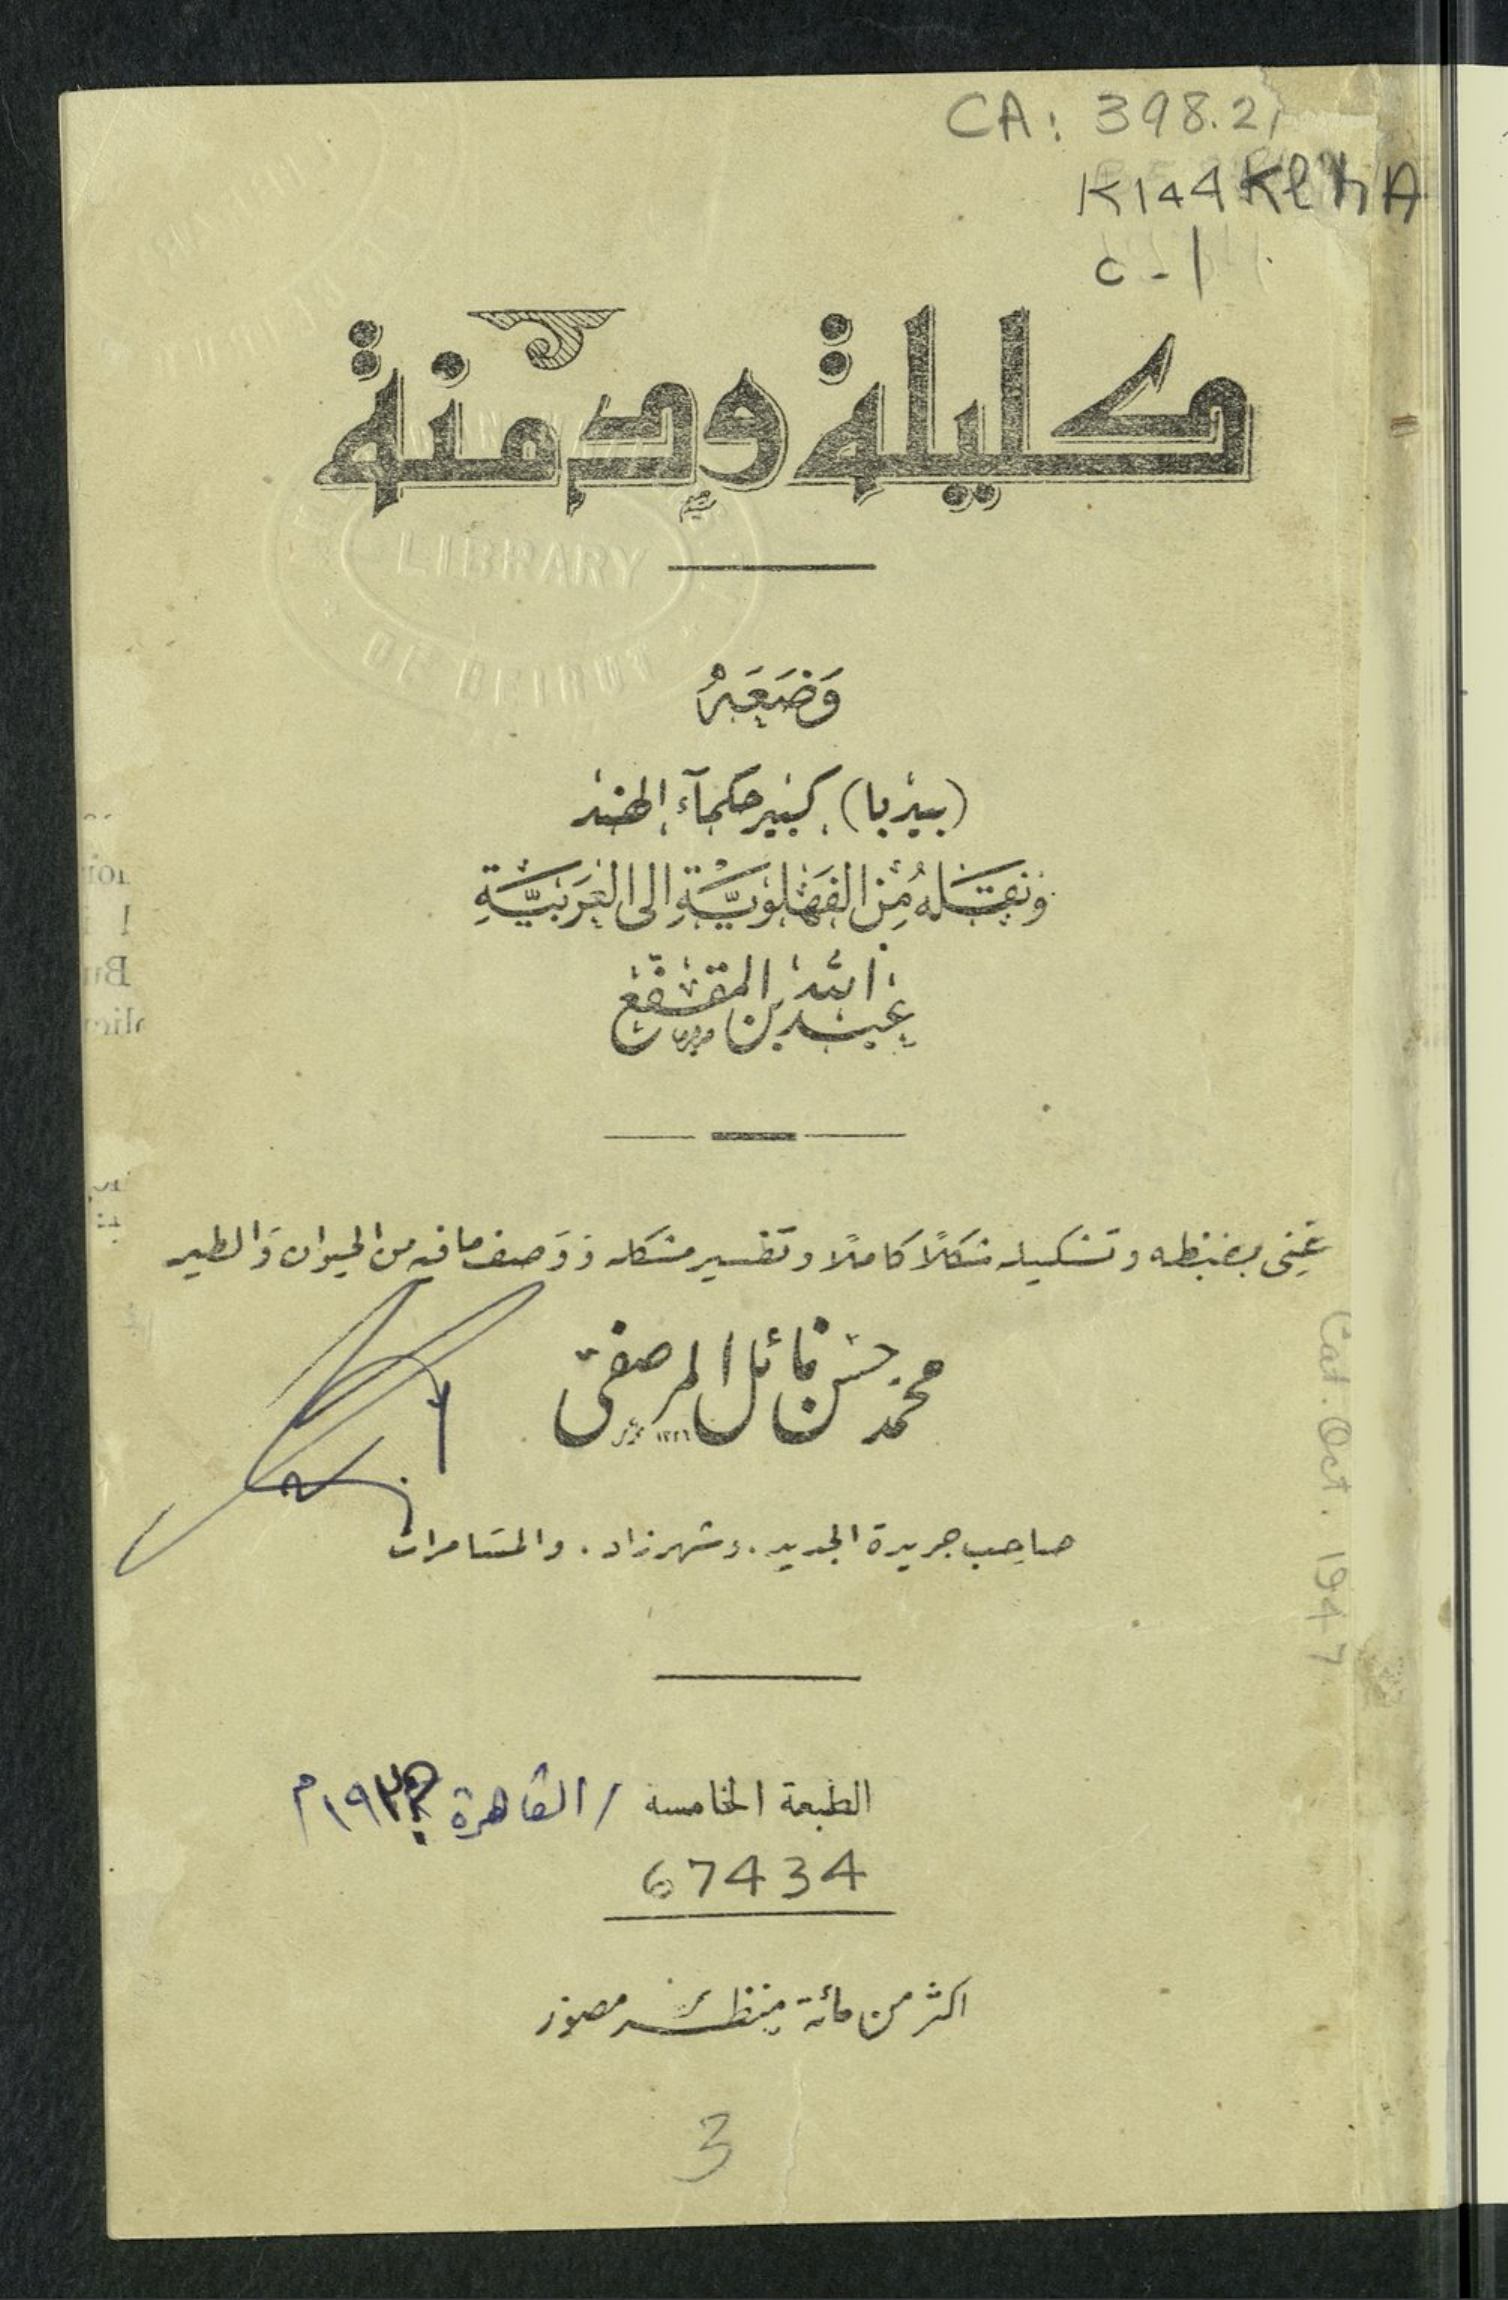 CA: 398.2
K144KlmA
c-1
كليلة ودمنة
LIBRARY
OF BEIRUT
وَضَعَهُ
(بيدبا) كبير حكمآء الهند
ونقله من الفهلوية الى العربية
عبد الله بن المقفع
عُنِيَ بضبطه وتشكيله شكلاً كاملاً وتفسير مشكله ووصف ما فيه من الحيوان والطير
محمد حسن نائل المرصفي
١٣٢٦
صاحب جريدة الجديد . وشهرزاد . والمسامرات
Cat. Oct. 1947
الطبعة الخامسة / القاهرة
67434
اكثر من مائة منظر مصور
3